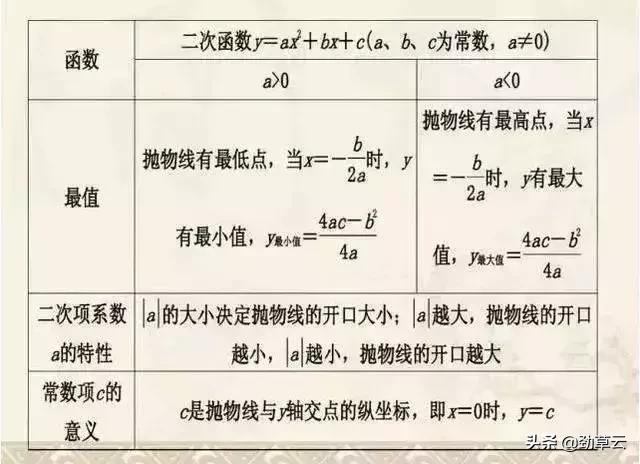 函数
二次函数y=ax²+bx+c(a、b、c为常数，a≠0)
a>0
a<0
最值
抛物线有最低点，当x=-b/2a时，y
有最小值，y最小值=4ac-b²/4a
抛物线有最高点，当x
=-b/2a时，y有最大
值，y最大值=4ac-b²/4a
二次项系数
a的特性
|a|的大小决定抛物线的开口大小；|a|越大，抛物线的开口
越小，|a|越小，抛物线的开口越大
常数项c的
意义
c是抛物线与y轴交点的纵坐标，即x=0时，y=c
头条@劲草云